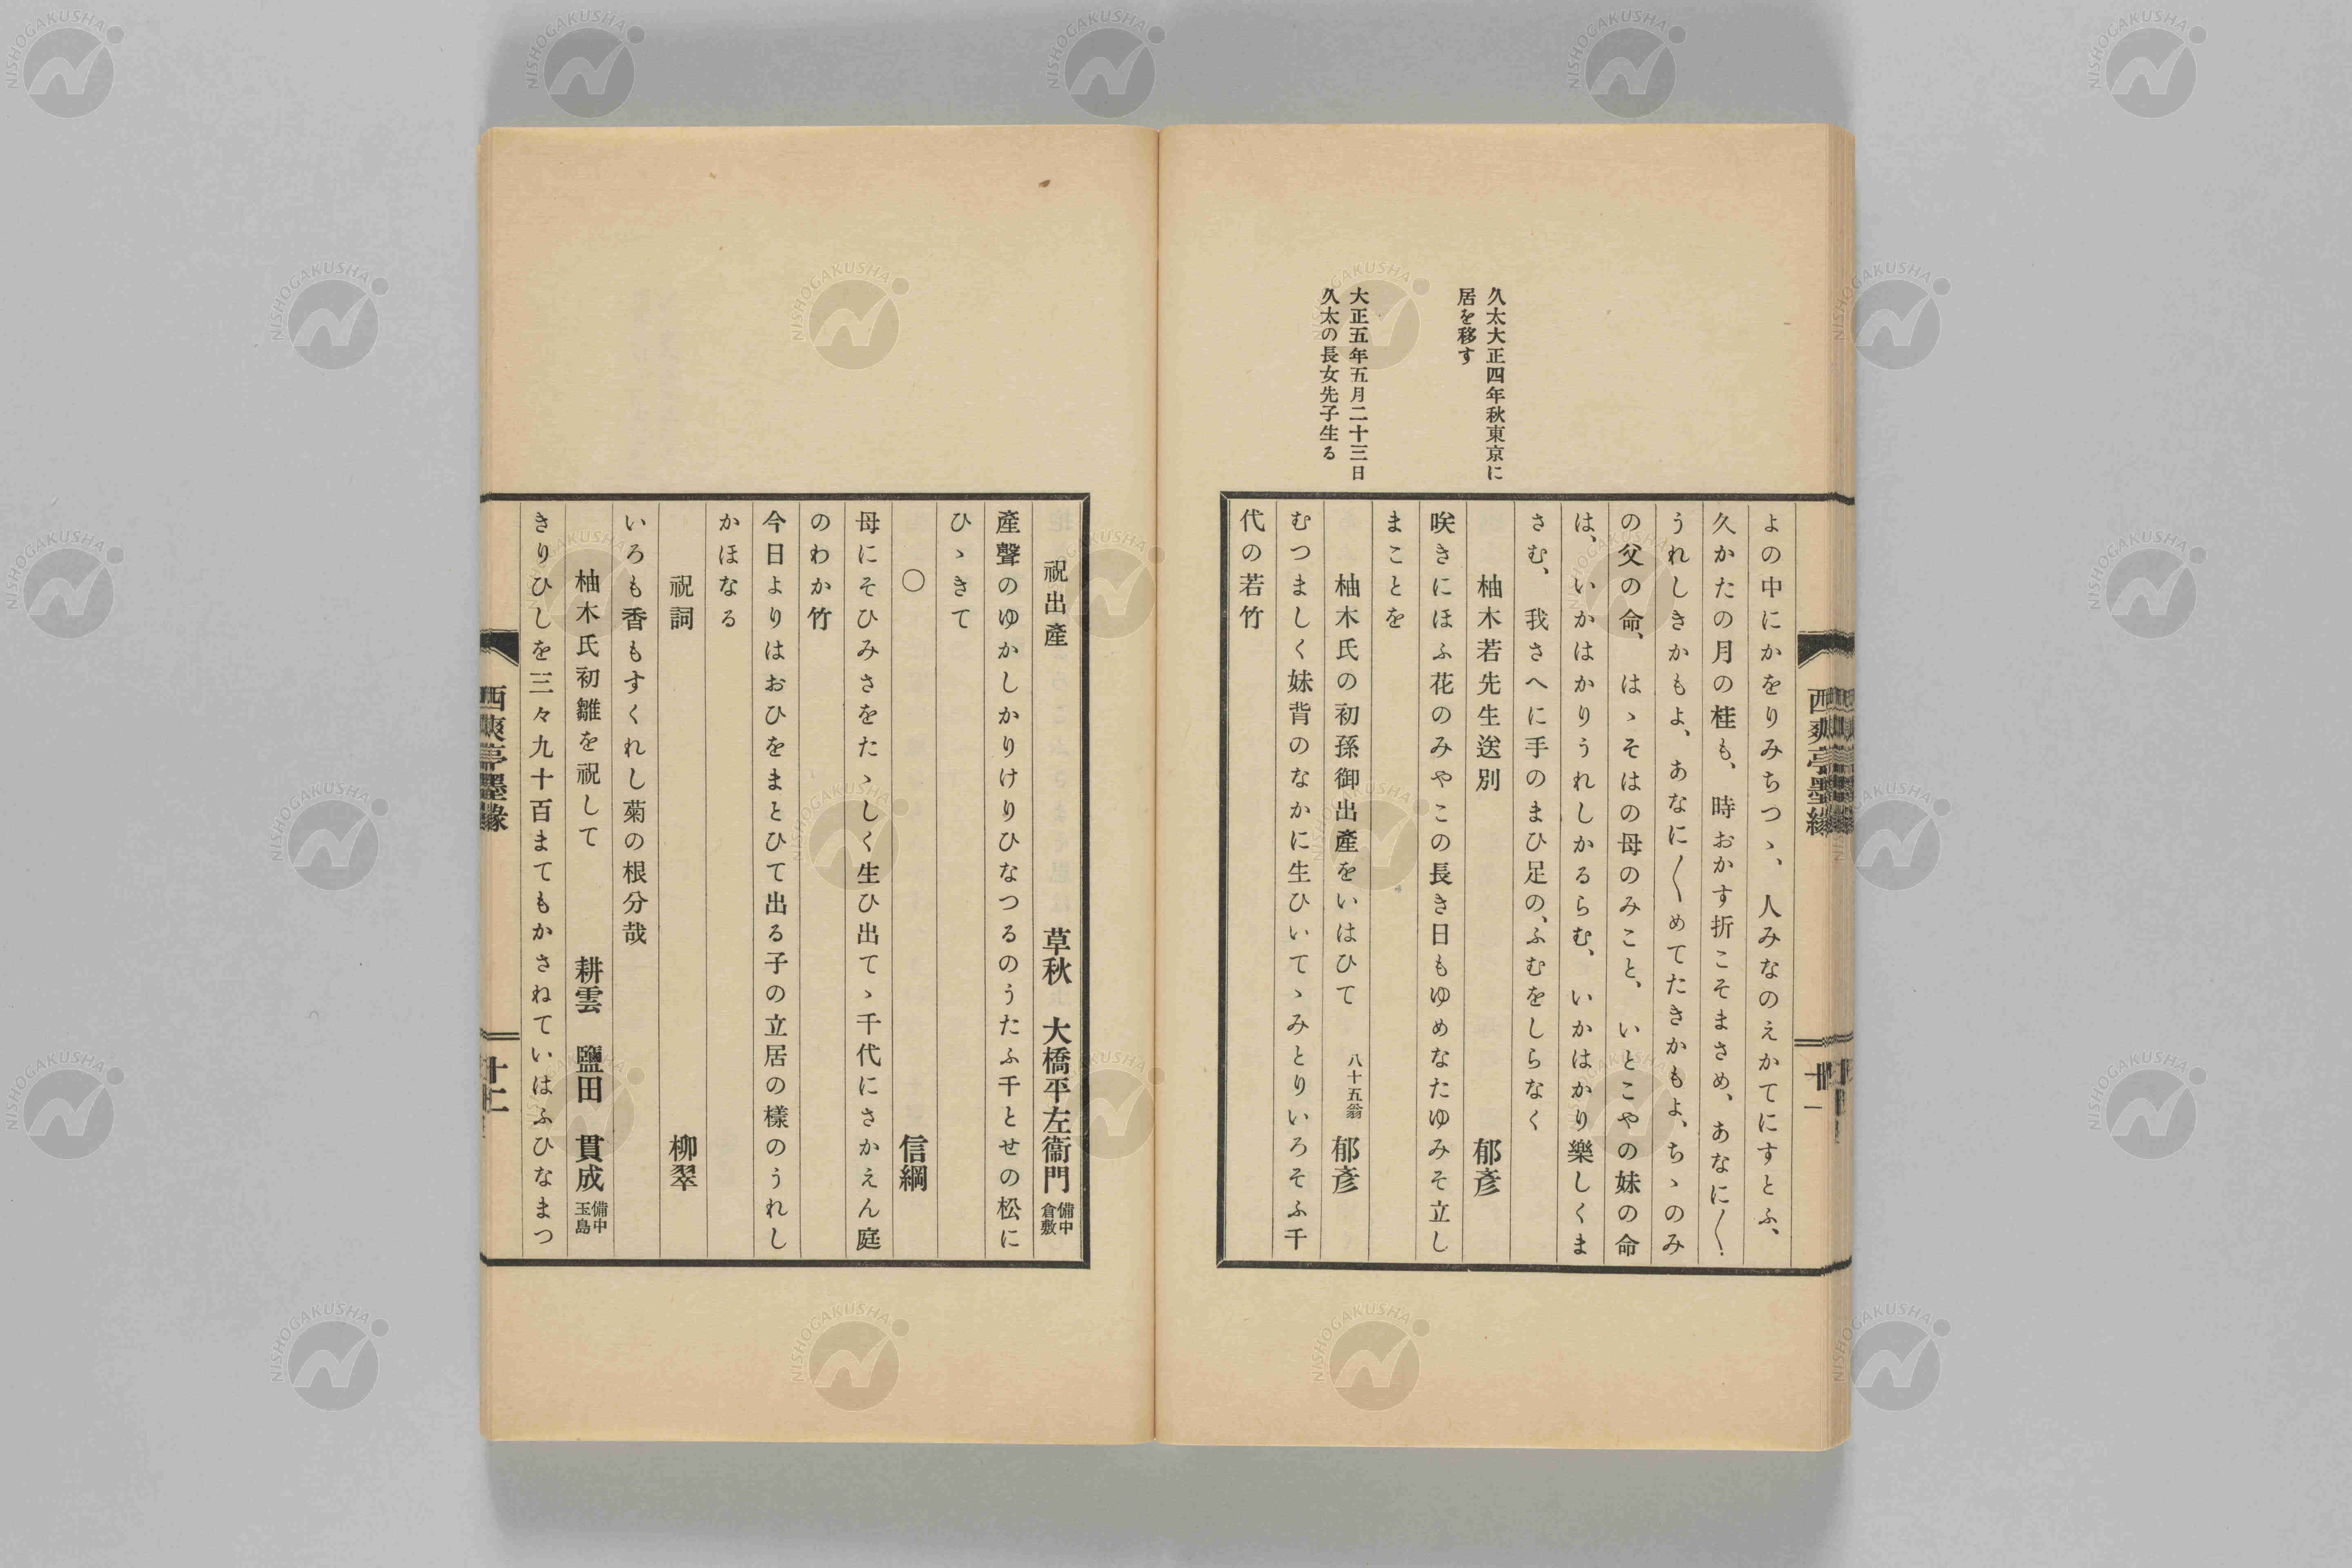 久太大正四年秋東京に
居を移す
大正五年五月二十三日
久太の長女先子生る
よの中にかをりみちつゝ、人みなのえかてにすとふ、
久かたの月の桂も、時おかす折こそまさめ、あなに〱
うれしきかもよ、あなに〱めてたきかもよ、ちゝのみ
の父の命、はゝそはの母のみこと、いとこやの妹の命
は、いかはかりうれしかるらむ、いかはかり樂しくま
さむ、我さへに手のまひ足の、ふむをしらなく
柚木若先生送別 郁彦
咲きにほふ花のみやこの長き日もゆめなたゆみそ立し
まことを
柚木氏の初孫御出產をいはひて 八十五翁 郁彦
むつましく妹背のなかに生ひいてゝみとりいろそふ千
代の若竹
西爽亭墨緣
十一
祝出產 草秋 大橋平左衞門 備中倉敷
產聲のゆかしかりけりひなつるのうたふ千とせの松に
ひゝきて
○ 信綱
母にそひみさをたゝしく生ひ出てゝ千代にさかえん庭
のわか竹
今日よりはおひをまとひて出る子の立居の樣のうれし
かほなる
祝詞 柳翠
いろも香もすくれし菊の根分哉
柚木氏初雛を祝して 耕雲 鹽田 貫成 備中玉島
きりひしを三々九十百まてもかさねていはふひなまつ
西爽亭墨緣
十二
NISHOGAKUSHA